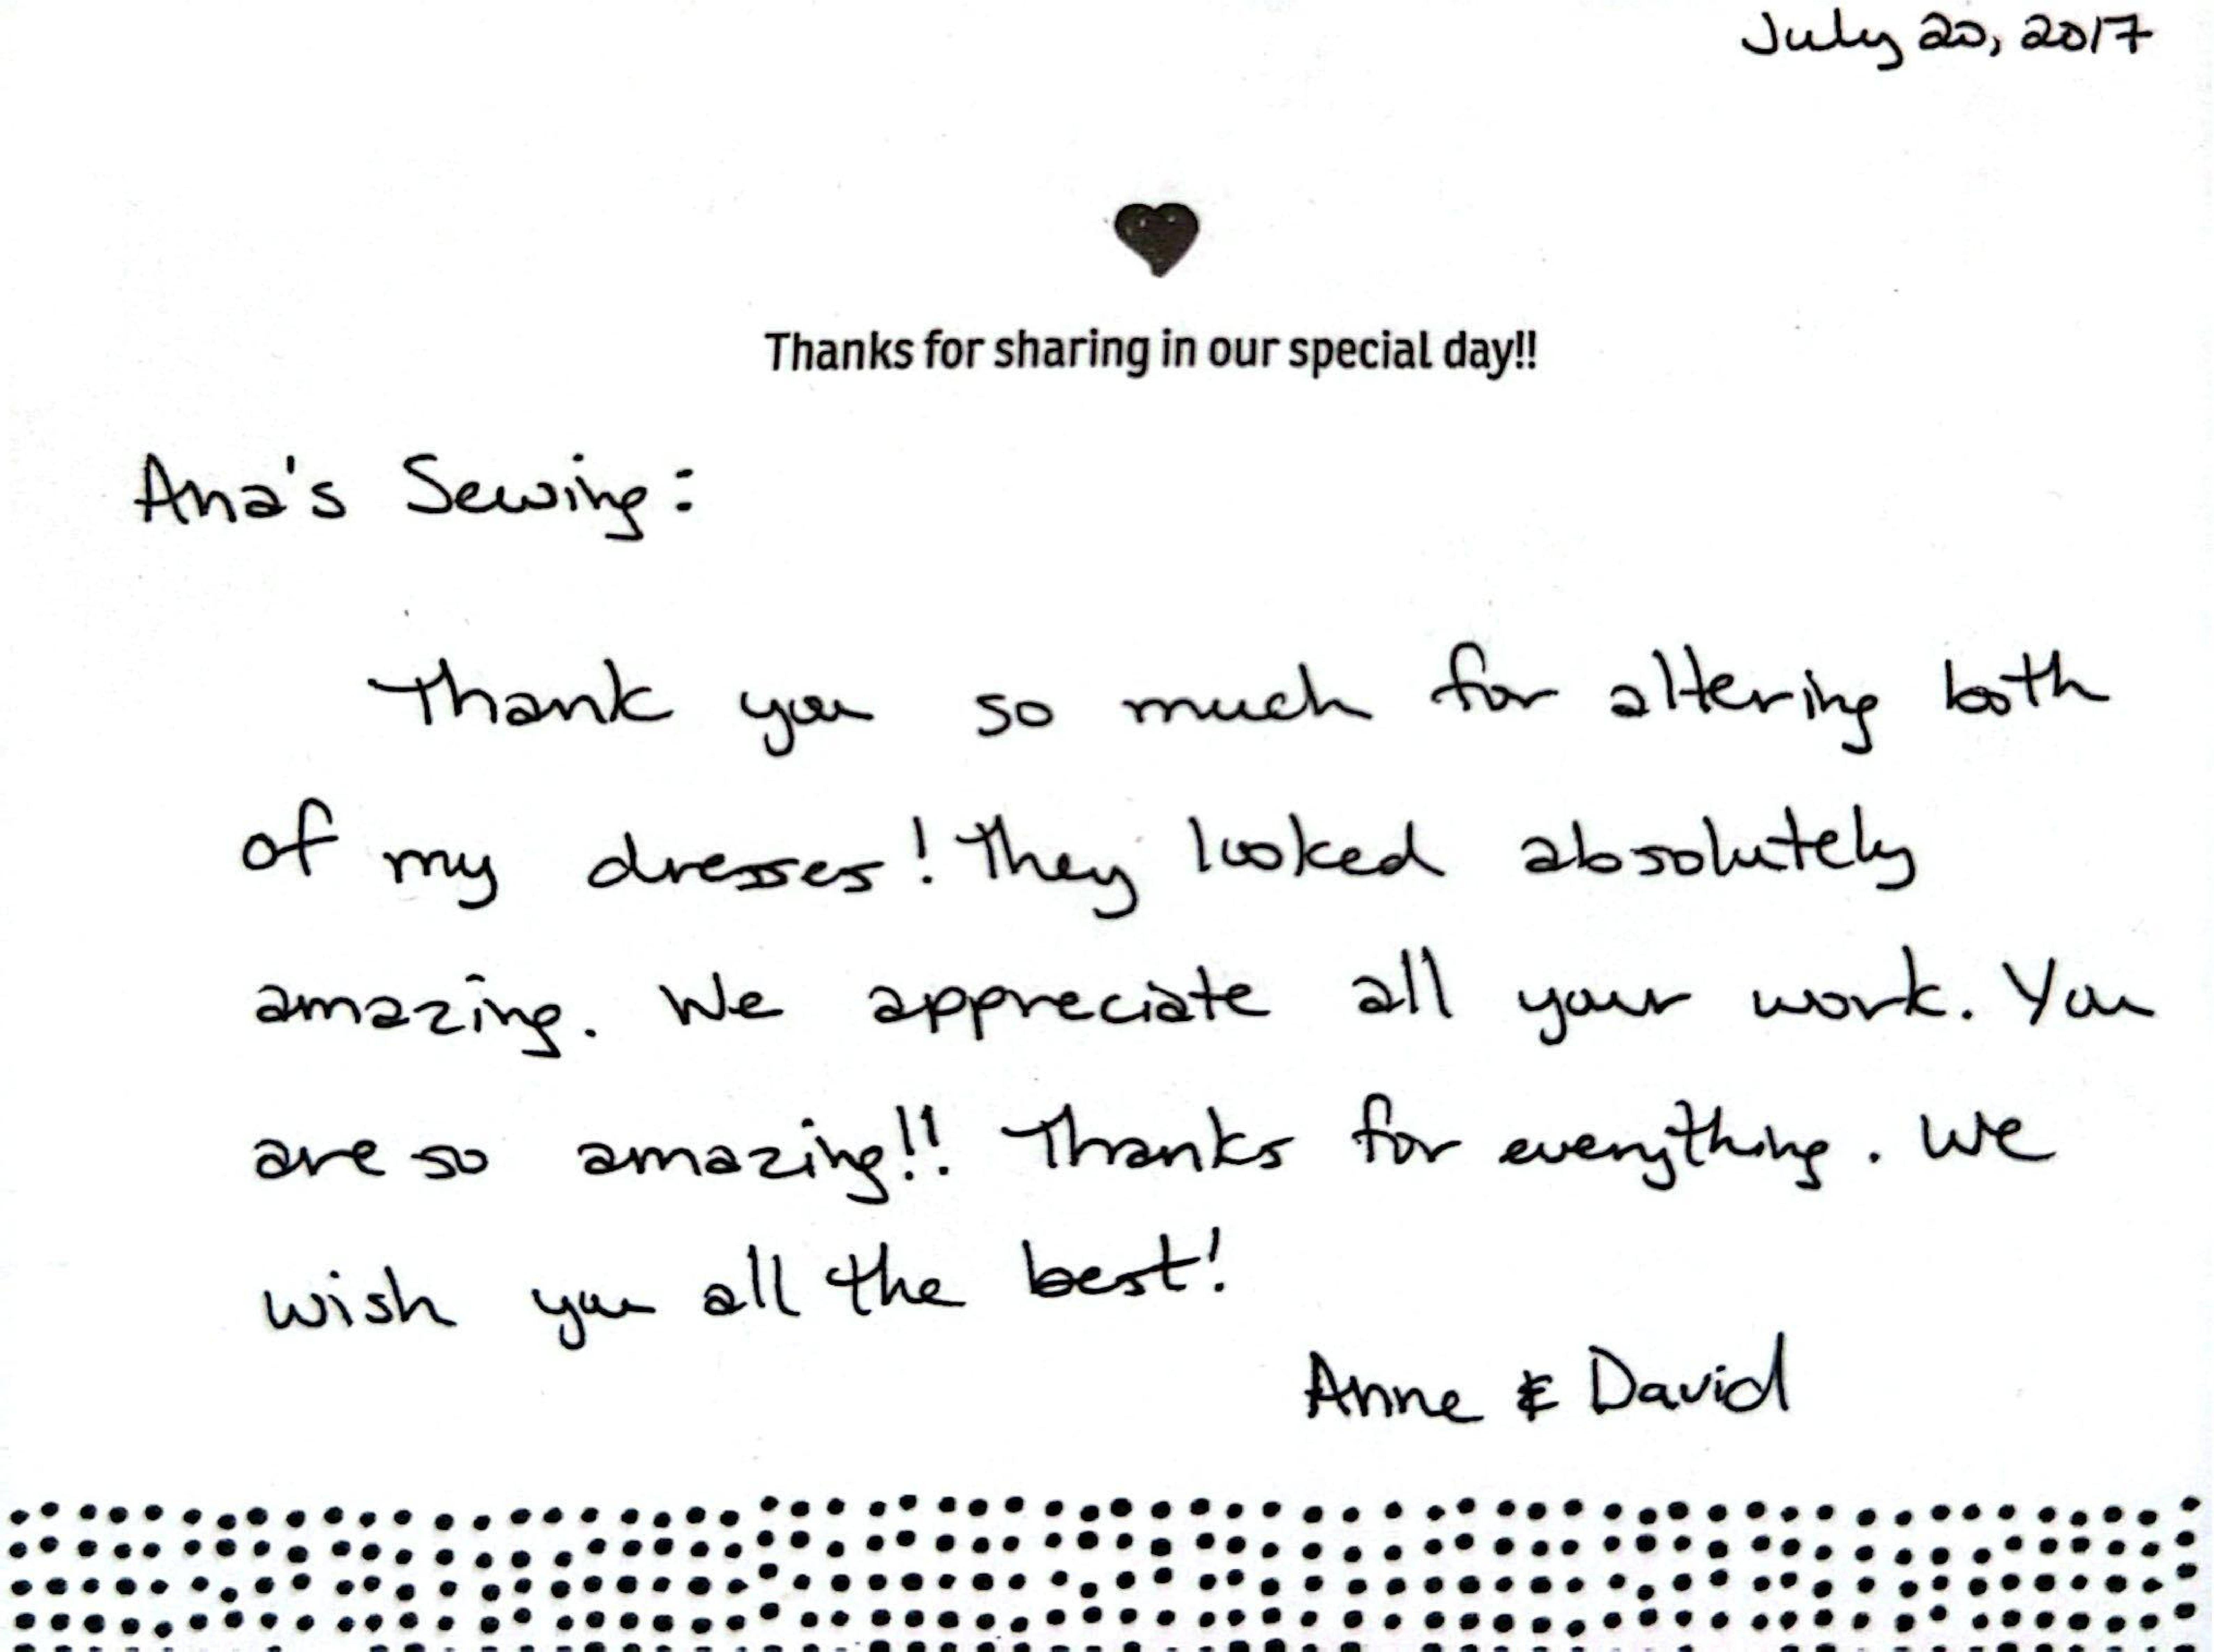 July 20, 2017
Thanks for sharing in our special day!!
Ana's Sewing:
Thank you so much for altering both
of my dresses! They looked absolutely
amazing. We appreciate all your work. You
are so amazing!! Thanks for everything. We
wish you all the best!
Anne & David